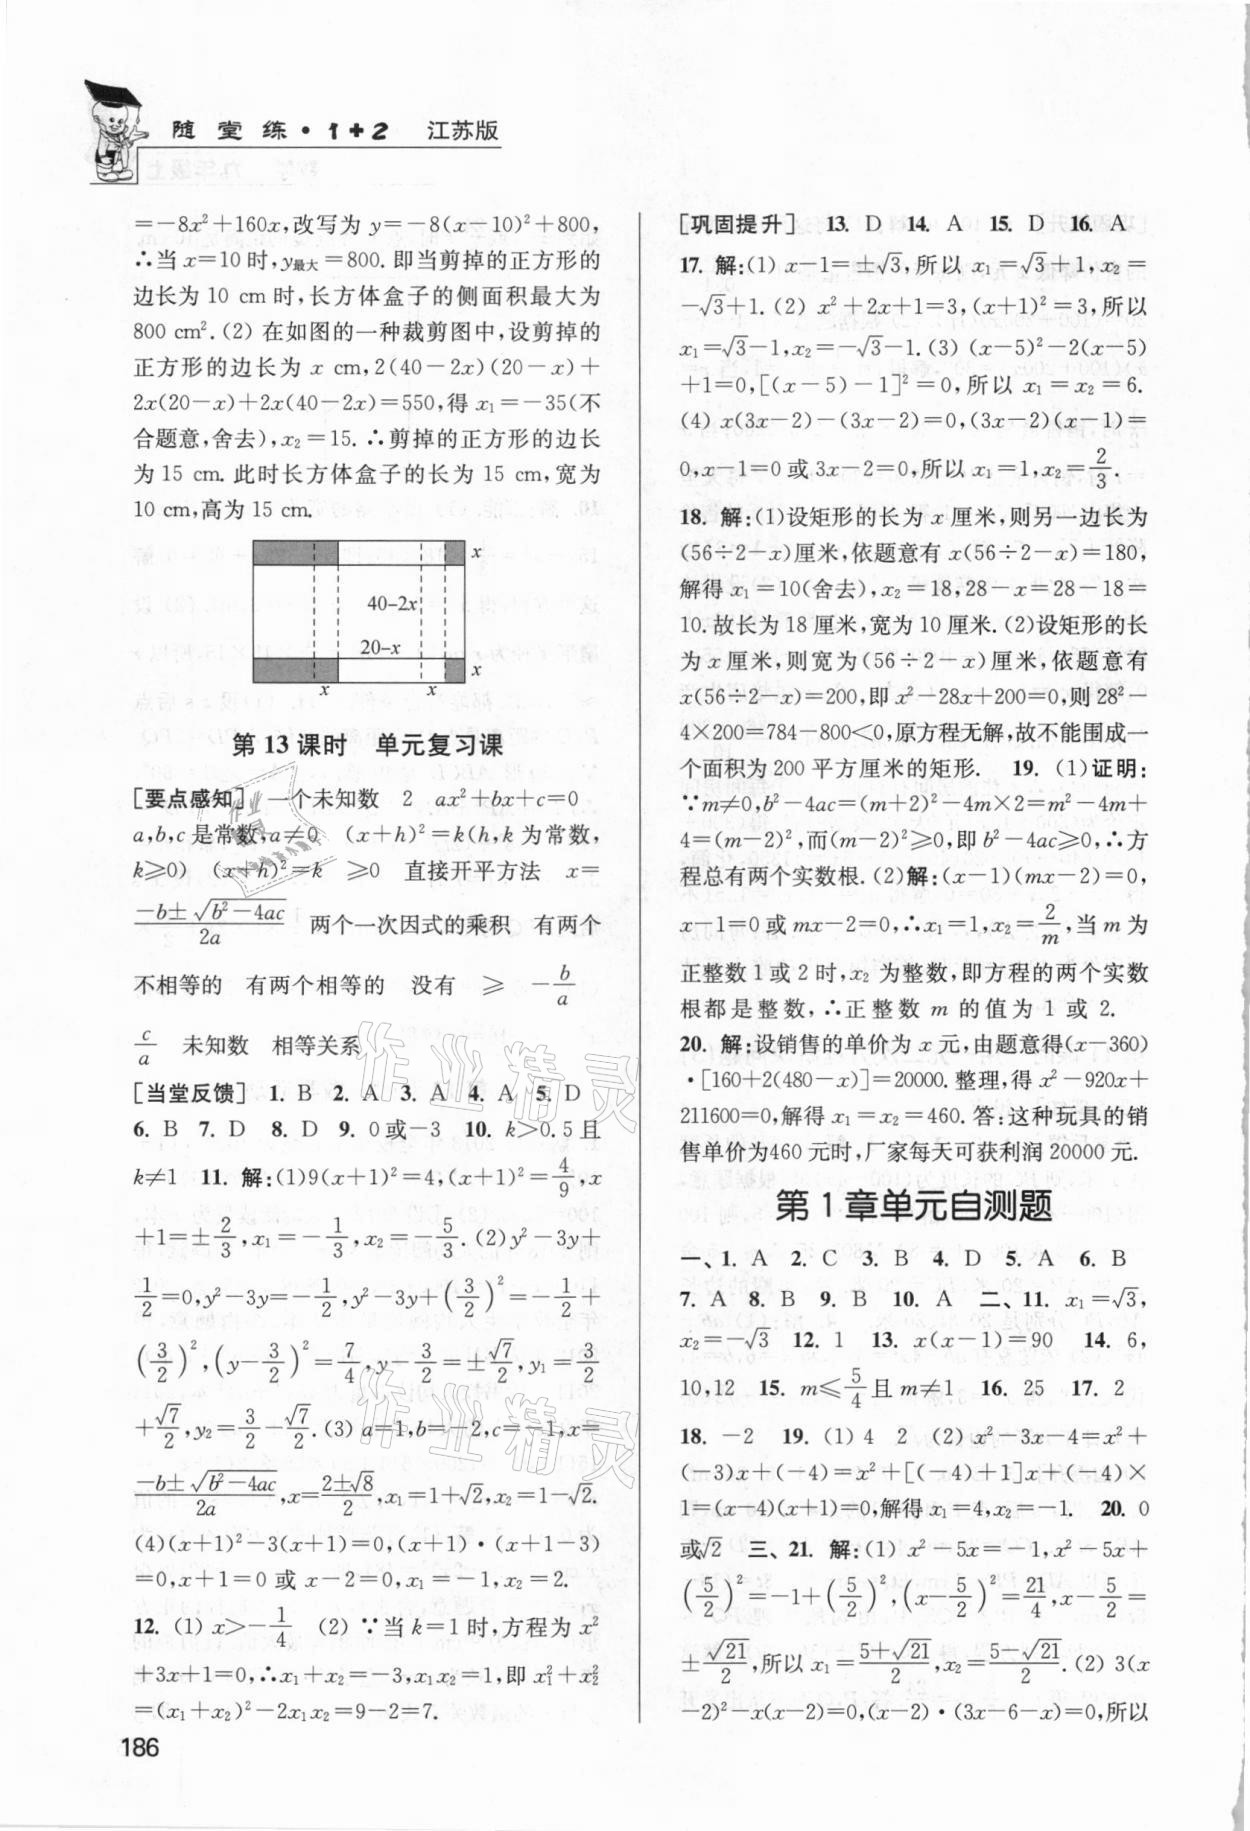 随堂练·1+2 江苏版
=-8x²+160x,改写为 y=-8(x-10)²+800,
∴当 x=10 时,y最大=800.即当剪掉的正方形的
边长为 10 cm 时,长方体盒子的侧面积最大为
800 cm².(2) 在如图的一种裁剪图中,设剪掉的
正方形的边长为 x cm,2(40-2x)(20-x)+
2x(20-x)+2x(40-2x)=550,得 x₁=-35(不
合题意,舍去),x₂=15.∴剪掉的正方形的边长
为 15 cm.此时长方体盒子的长为 15 cm,宽为
10 cm,高为 15 cm.
x
40-2x
20-x
x
x
x
第 13 课时 单元复习课
[要点感知] 一个未知数 2 ax²+bx+c=0
a,b,c 是常数,a≠0 (x+h)²=k(h,k 为常数,
k≥0) (x+h)²=k ≥0 直接开平方法 x=
\frac{-b±√(b²-4ac)}{2a} 两个一次因式的乘积 有两个
不相等的 有两个相等的 没有 ≥ -\frac{b}{a}
\frac{c}{a} 未知数 相等关系
[当堂反馈] 1. B 2. A 3. A 4. A 5. D
6. B 7. D 8. D 9. 0或-3 10. k>0.5且
k≠1 11. 解:(1)9(x+1)²=4,(x+1)²=\frac{4}{9},x
+1=±\frac{2}{3},x₁=-\frac{1}{3},x₂=-\frac{5}{3}.(2)y²-3y+
\frac{1}{2}=0,y²-3y=-\frac{1}{2},y²-3y+(\frac{3}{2})²=-\frac{1}{2}+
(\frac{3}{2})²,(y-\frac{3}{2})²=\frac{7}{4},y-\frac{3}{2}=±\frac{√7}{2},y₁=\frac{3}{2}
+\frac{√7}{2},y₂=\frac{3}{2}-\frac{√7}{2}.(3) a=1,b=-2,c=-1,x=
\frac{-b±√(b²-4ac)}{2a},x=\frac{2±√8}{2},x₁=1+√2,x₂=1-√2.
(4)(x+1)²-3(x+1)=0,(x+1)·(x+1-3)
=0,x+1=0 或 x-2=0,x₁=-1,x₂=2.
12. (1) x>-\frac{1}{4} (2) ∵当 k=1 时,方程为 x²
+3x+1=0,∴x₁+x₂=-3,x₁x₂=1,即 x₁²+x₂²
=(x₁+x₂)²-2x₁x₂=9-2=7.
186
[巩固提升] 13. D 14. A 15. D 16. A
17. 解:(1) x-1=±√3,所以 x₁=√3+1,x₂=
-√3+1.(2) x²+2x+1=3,(x+1)²=3,所以
x₁=√3-1,x₂=-√3-1.(3) (x-5)²-2(x-5)
+1=0,[(x-5)-1]²=0,所以 x₁=x₂=6.
(4) x(3x-2)-(3x-2)=0,(3x-2)(x-1)=
0,x-1=0 或 3x-2=0,所以 x₁=1,x₂=\frac{2}{3}.
18. 解:(1)设矩形的长为 x 厘米,则另一边长为
(56÷2-x)厘米,依题意有 x(56÷2-x)=180,
解得 x₁=10(舍去),x₂=18,28-x=28-18=
10.故长为 18 厘米,宽为 10 厘米.(2)设矩形的长
为 x 厘米,则宽为(56÷2-x)厘米,依题意有
x(56÷2-x)=200,即 x²-28x+200=0,则 28²-
4×200=784-800<0,原方程无解,故不能围成一
个面积为 200 平方厘米的矩形. 19. (1)证明:
∵m≠0,b²-4ac=(m+2)²-4m×2=m²-4m+
4=(m-2)²,而(m-2)²≥0,即 b²-4ac≥0,∴方
程总有两个实数根.(2)解:(x-1)(mx-2)=0,
x-1=0 或 mx-2=0,∴x₁=1,x₂=\frac{2}{m},当 m 为
正整数 1 或 2 时,x₂ 为整数,即方程的两个实数
根都是整数,∴正整数 m 的值为 1 或 2.
20. 解:设销售的单价为 x 元,由题意得(x-360)
·[160+2(480-x)]=20000.整理,得 x²-920x+
211600=0,解得 x₁=x₂=460.答:这种玩具的销
售单价为460 元时,厂家每天可获利润 20000 元.
第 1 章单元自测题
一、1. A 2. C 3. B 4. D 5. A 6. B
7. A 8. B 9. B 10. A 二、11. x₁=√3,
x₂=-√3 12. 1 13. x(x-1)=90 14. 6,
10,12 15. m≤\frac{5}{4}且 m≠1 16. 25 17. 2
18. -2 19. (1) 4 2 (2) x²-3x-4=x²+
(-3)x+(-4)=x²+[(-4)+1]x+(-4)×
1=(x-4)(x+1)=0,解得 x₁=4,x₂=-1. 20. 0
或√2 三、21. 解:(1) x²-5x=-1,x²-5x+
(\frac{5}{2})²=-1+(\frac{5}{2})²,(x-\frac{5}{2})²=\frac{21}{4},x-\frac{5}{2}=
±\frac{√21}{2},所以 x₁=\frac{5+√21}{2},x₂=\frac{5-√21}{2}.(2) 3(x
-2)²-x(x-2)=0,(x-2)·(3x-6-x)=0,所以
作业精灵
作业精灵